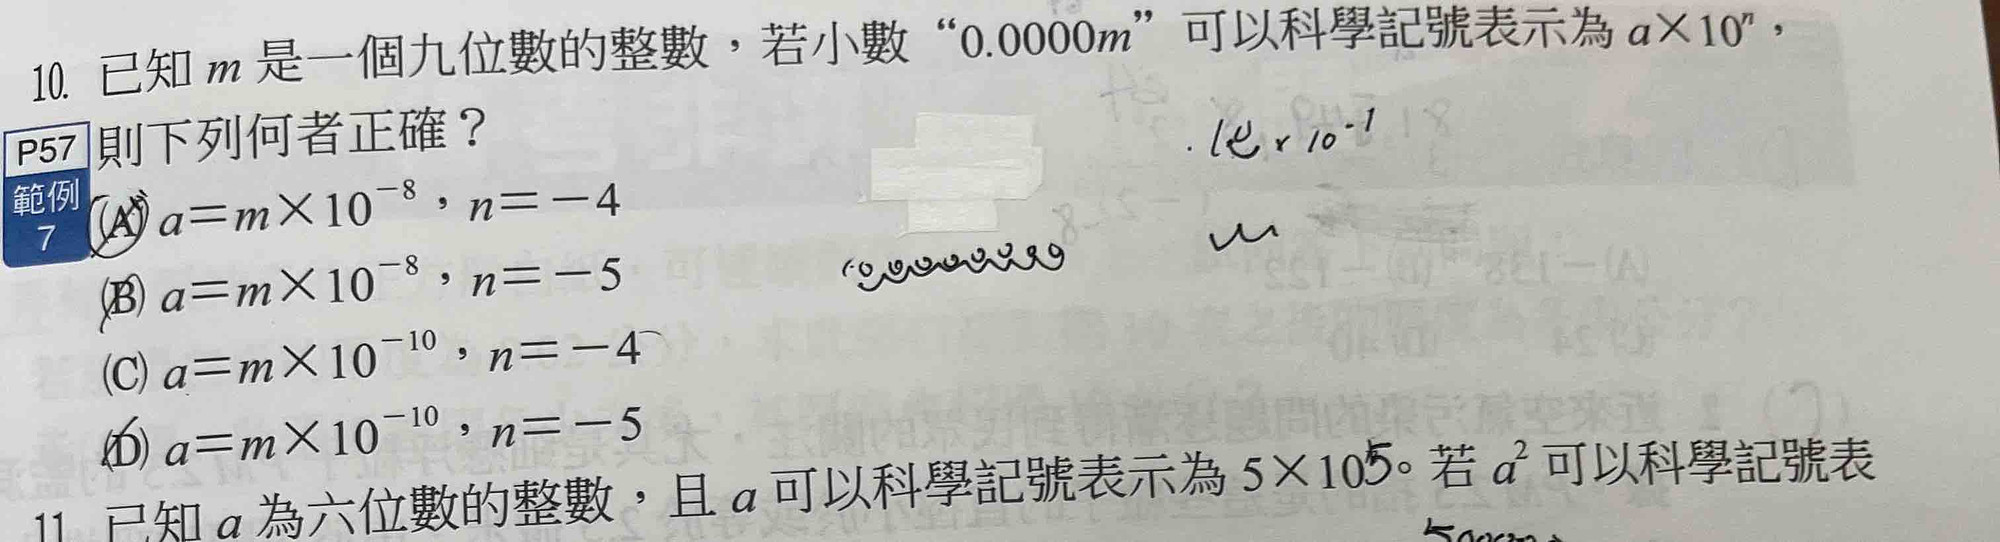 10. 已知 m 是一個九位數的整數，若小數“0.0000m”可以科學記號表示為 a×10ⁿ，
P57 則下列何者正確？
範例
7
(A) a＝m×10⁻⁸，n＝－4
(B) a＝m×10⁻⁸，n＝－5
(C) a＝m×10⁻¹⁰，n＝－4
(D) a＝m×10⁻¹⁰，n＝－5
11. 已知 a 為六位數的整數，且 a 可以科學記號表示為 5×10⁵。若 a² 可以科學記號表